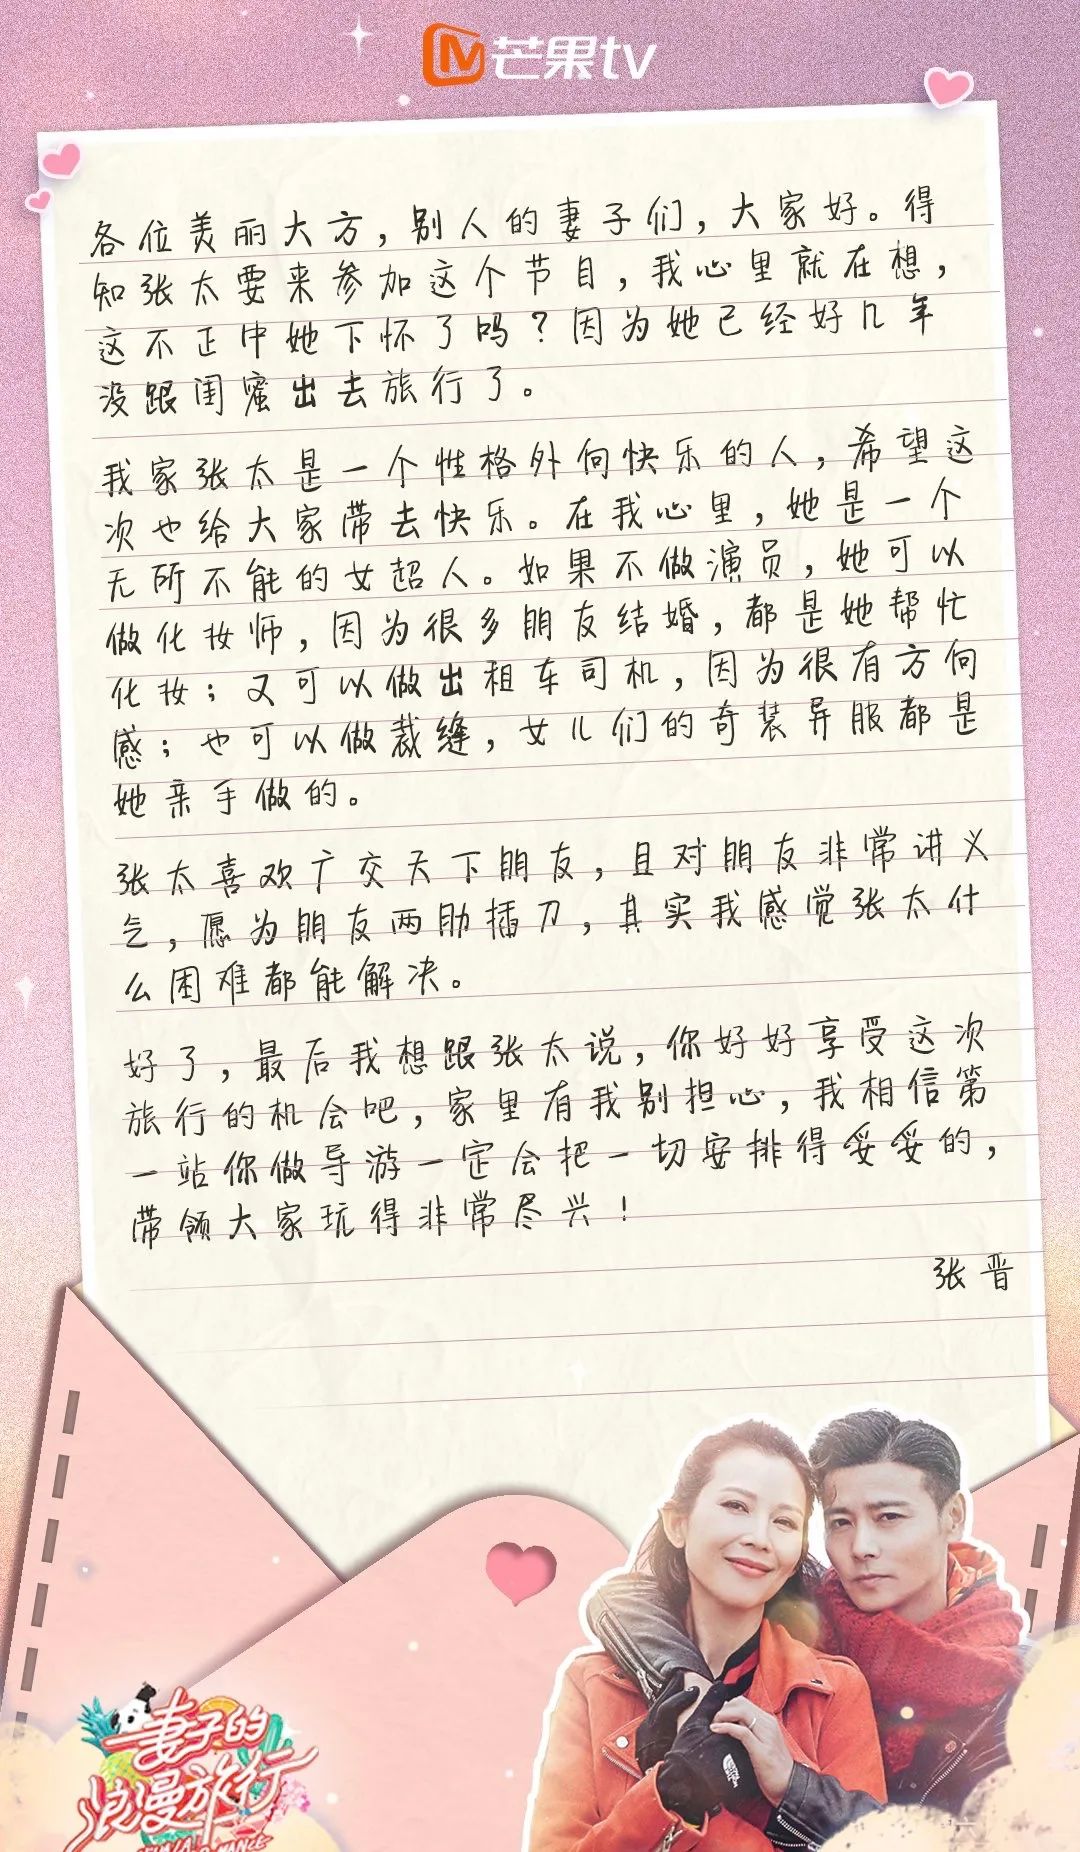 芒果tv
各位美丽大方，别人的妻子们，大家好。得
知张太要来参加这个节目，我心里就在想，
这不正中她下怀了吗？因为她已经好几年
没跟闺蜜出去旅行了。
我家张太是一个性格外向快乐的人，希望这
次也给大家带去快乐。在我心里，她是一个
无所不能的女超人。如果不做演员，她可以
做化妆师，因为很多朋友结婚，都是她帮忙
化妆；又可以做出租车司机，因为很有方向
感；也可以做裁缝，女儿们的奇装异服都是
她亲手做的。
张太喜欢广交天下朋友，且对朋友非常讲义
气，愿为朋友两肋插刀，其实我感觉张太什
么困难都能解决。
好了，最后我想跟张太说，你好好享受这次
旅行的机会吧，家里有我别担心，我相信第
一站你做导游一定会把一切安排得妥妥的，
带领大家玩得非常尽兴！
张晋
妻子的
浪漫旅行
THE NORTH FACE